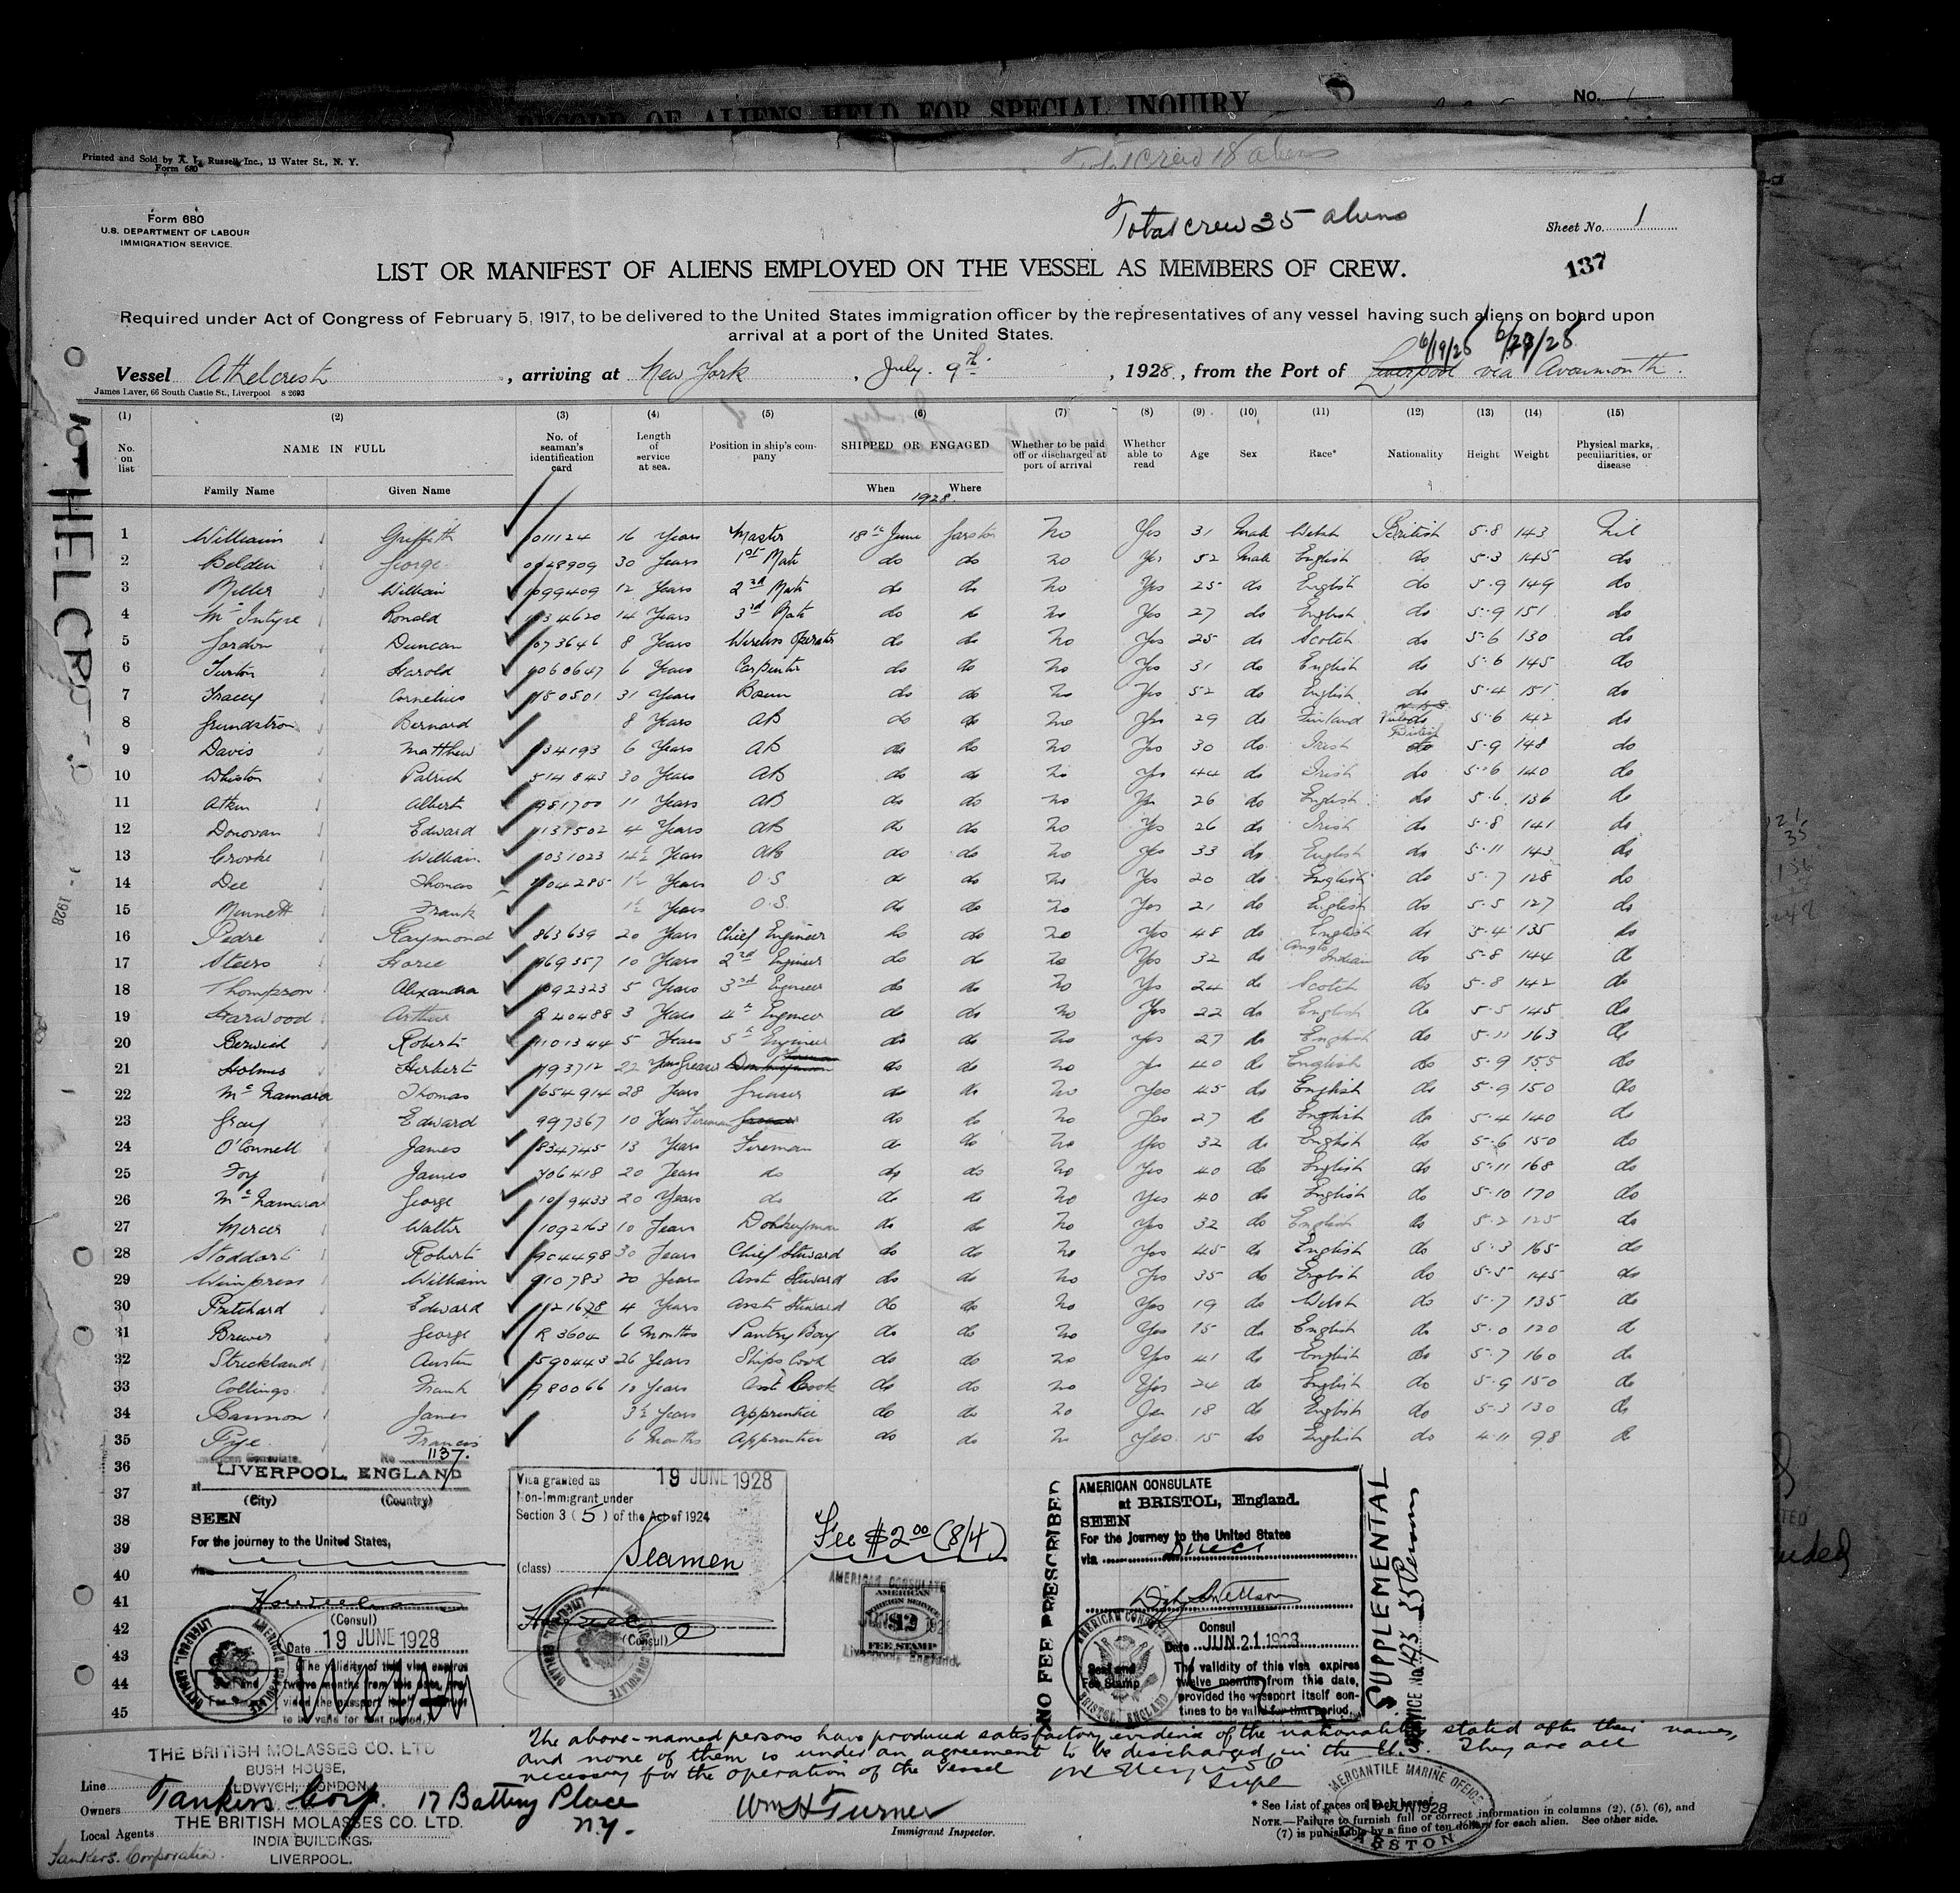 RECORD OF ALIENS HELD FOR SPECIAL INQUIRY
No. 1
Printed and Sold by A. L. Russell, Inc., 13 Water St., N. Y.
Form 680
Total crew 18 aliens
Form 680
U.S. DEPARTMENT OF LABOUR
IMMIGRATION SERVICE.
Total crew 35 aliens
Sheet No. 1
137
LIST OR MANIFEST OF ALIENS EMPLOYED ON THE VESSEL AS MEMBERS OF CREW.
Required under Act of Congress of February 5, 1917, to be delivered to the United States immigration officer by the representatives of any vessel having such aliens on board upon
arrival at a port of the United States.
6/19/28 6/23/28
Vessel Athelcrest, arriving at New York, July 9th, 1928, from the Port of Liverpool via Avonmouth.
James Laver, 66 South Castle St., Liverpool s 2693
(1) (2) (3) (4) (5) (6) (7) (8) (9) (10) (11) (12) (13) (14) (15)
No. on list NAME IN FULL No. of seaman's identification card Length of service at sea. Position in ship's company SHIPPED OR ENGAGED Whether to be paid off or discharged at port of arrival Whether able to read Age Sex Race* Nationality Height Weight Physical marks, peculiarities, or disease
Family Name Given Name When 1928. Where
1 Williams Griffith 1011124 16 Years Master 18th June Garston No Yes 31 Male Welsh British 5-8 143 Nil
2 Belden George 30 Years 1st Mate do do no Yes 52 Male English do 5-3 145 do
3 Miller William 1099409 12 Years 2nd Mate do do No Yes 25 do English do 5-9 149 do
4 McIntyre Ronald 14 Years 3rd Mate do do No Yes 27 do English do 5-9 151 do
5 Gordon Duncan 1073646 8 Years Wireless Operator do do No Yes 25 do Scotch do 5-6 130 do
6 Turton Harold 1060647 6 Years Carpenter do do No Yes 31 do English do 5-6 145 do
7 Tracey Cornelius 31 Years Bosun do do No Yes 52 do English do 5-4 151 do
8 Grundstrom Bernard 8 Years AB do do no Yes 29 do Finland 5-6 142 do
9 Davis Matthew 6 Years AB do do No Yes 30 do Irish British do 5-9 148 do
10 Whiston Patrick 514843 30 Years AB do do No Yes 44 do Irish do 5-6 140 do
11 Atkin Albert 981700 11 Years AB do do no Yes 26 do English do 5-6 136 do
12 Donovan Edward 1137502 4 Years AB do do No Yes 26 do Irish do 5-8 141 do
13 Crooke William 1031023 14½ Years AB do do No Yes 33 do English do 5-11 143 do
14 Dee Thomas 1104285 1½ Years O.S do do No Yes 20 do English do 5-7 128 do
15 Minnett Frank 1½ Years O.S. do do No Yes 21 do English do 5-5 127 do
16 Pedre Raymond 863639 20 Years Chief Engineer do do No Yes 48 do English do 5-4 135 do
17 Steers 969357 10 Years 2nd Engineer do do No Yes 32 do Anglo Indian do 5-8 144 do
18 Thompson Alexandra 1092323 5 Years 3rd Engineer do do No Yes 24 do Scotch do 5-8 142 do
19 Garwood Arthur R 40488 3 Years 4th Engineer do do No Yes 22 do English do 5-5 145 do
20 Berwick Robert 1101344 5 Years 5th Engineer do do No Yes 27 do English do 5-11 163 do
21 Holmes Herbert 793712 22 Years Greaser do do No Yes 40 do English do 5-9 155 do
22 McNamara Thomas 654914 28 Years Greaser do do No Yes 45 do English do 5-9 150 do
23 Gray Edward 997367 10 Years Fireman do do No Yes 27 do English do 5-4 140 do
24 O'Connell James 834745 13 Years Fireman do do No Yes 32 do English do 5-6 150 do
25 Foy James 706418 20 Years do do do No Yes 40 do English do 5-11 168 do
26 McNamara George 1019433 20 Years do do do No Yes 40 do English do 5-10 170 do
27 Mercer Walter 1092163 10 Years Donkeyman do do No Yes 32 do English do 5-2 125 do
28 Stoddart Robert 904498 30 Years Chief Steward do do No Yes 45 do English do 5-3 165 do
29 Winpress William 910783 20 Years Asst Steward do do No Yes 35 do English do 5-5 145 do
30 Pritchard Edward 1121678 4 Years Asst Steward do do No Yes 19 do Welsh do 5-7 135 do
31 Brewer George R 3604 6 Months Pantry Boy do do No Yes 15 do English do 5-0 120 do
32 Strickland Austin 590443 26 Years Ships Cook do do no Yes 41 do English do 5-7 160 do
33 Collings Frank 980066 10 Years Asst Cook do do no Yes 24 do English do 5-9 150 do
34 Bannon James 3½ Years Apprentice do do No Yes 18 do English do 5-3 130 do
35 Pye Francis 6 Months Apprentice do do No Yes 15 do English do 4-11 98 do
36
37
38
39
40
41
42
43
44
45
American Consulate No 1137.
at LIVERPOOL, ENGLAND
(City) (Country)
SEEN
For the journey to the United States,
via
(Consul)
Date 19 JUNE 1928
The validity of this visa expires
twelve months from this date, provided the passport itself continues
to be valid for that period.
Visa granted as 19 JUNE 1928
Non-Immigrant under
Section 3 (5) of the Act of 1924
(class) Seamen
(Consul)
Fee $2.00 (8/4)
AMERICAN CONSULATE
AMERICAN
FOREIGN SERVICE
$2
FEE STAMP
Liverpool, England.
NO FEE PRESCRIBED
AMERICAN CONSULATE
at BRISTOL, England.
SEEN
For the journey to the United States
via Direct
Consul
Date JUN. 21. 1928
Seal and
Fee Stamp
The validity of this visa expires
twelve months from this date,
provided the passport itself continues
to be valid for that period.
SUPPLEMENTAL
SERVICE No. 473 35 Persons
The above-named persons have produced satisfactory evidence of the nationality stated after their names,
and none of them is under an agreement to be discharged in the U.S. They are all
necessary for the operation of the vessel
Supt
THE BRITISH MOLASSES CO. LTD
BUSH HOUSE,
ALDWYCH, LONDON
Line
Owners Tankers Corp. 17 Battery Place
N.Y.
THE BRITISH MOLASSES CO. LTD.
Local Agents
INDIA BUILDINGS,
LIVERPOOL.
Tankers Corporation
Wm H Turner
Immigrant Inspector.
MERCANTILE MARINE OFFICE
19 JUN 1928
GARSTON
* See List of races on back hereof.
NOTE.—Failure to furnish full or correct information in columns (2), (5), (6), and
(7) is punishable by a fine of ten dollars for each alien. See other side.